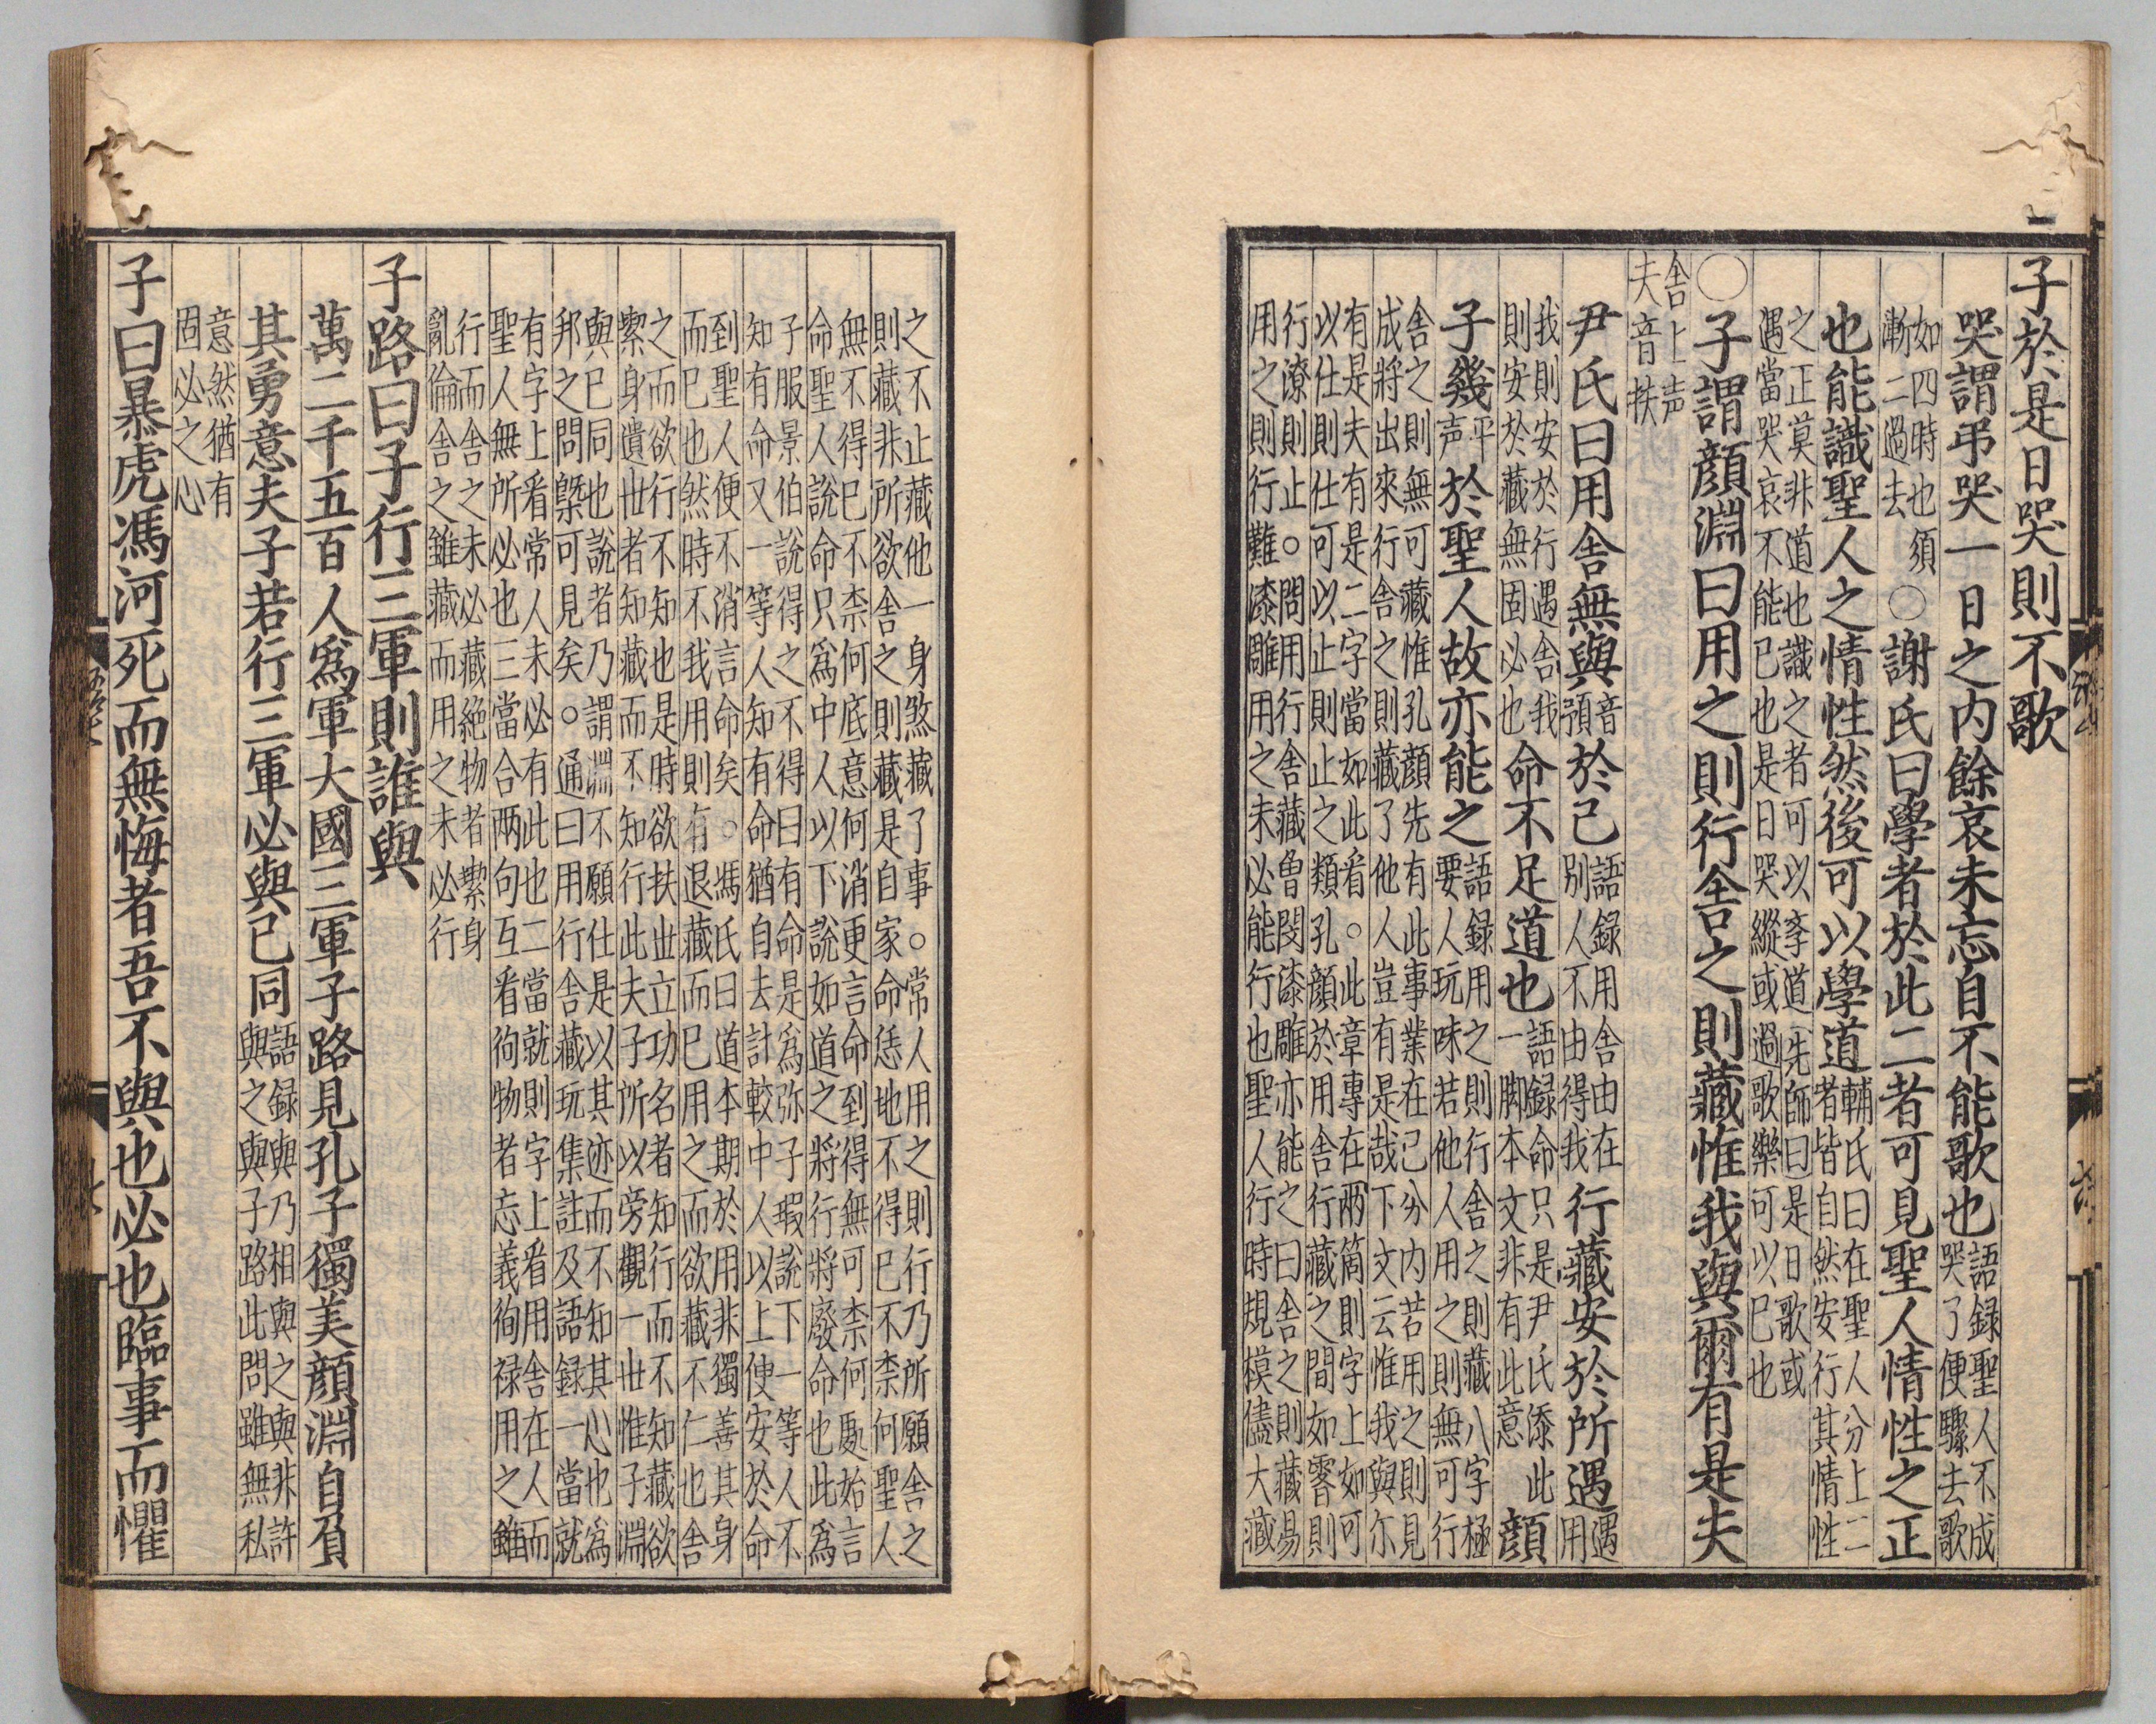 子於是日哭則不歌
哭謂弔哭一日之内餘哀未忘自不能歌也語録聖人不成哭了便驟去歌
如四時也須漸二過去○謝氏曰學者於此二者可見聖人情性之正
也能識聖人之情性然後可以學道輔氏曰在聖人分上二者皆自然安行其情性
之正莫非道也識之者可以斈道先師曰是日歌或遇當哭哀不能已也是日哭縱或過歌樂可以已也
○子謂顔淵曰用之則行舎之則藏惟我與爾有是夫
舎上声夫音扶
尹氏曰用舎無與音預於己語録用舎由在別人不由得我行藏安於所遇遇用
我則安於行遇舎我則安於藏無固必也命不足道也語録命只是尹氏添此一脚本文非有此意顔
子幾平声於聖人故亦能之語録用之則行舎之則藏八字極要人玩味若他人用之則無可行
舎之則無可藏惟孔顔先有此事業在己分内若用之則見成將出來行舎之則藏了他人豈有是哉下文云惟我與尓
有是夫有是二字當如此看○此章專在兩箇則字上如可以仕則仕可以止則止之類孔顔於用舎行藏之間如霽則
行潦則止○問用行舎藏魯閔漆雕亦能之曰舎之則藏易用之則行難漆雕用之未必能行也聖人行時規模儘大藏
之不止藏他一身煞藏了事○常人用之則行乃所願舎之則藏非所欲舎之則藏是自家命恁地不得已不柰何聖人
無不得已不柰何底意何消更言命到得無可柰何處始言命聖人說命只爲中人以下說如道之將行將廢命也此爲
子服景伯說得之不得曰有命是爲弥子瑕說下一等人不知有命又一等人知有命猶自去計較中人以上便安於命
到聖人便不消言命矣○馮氏曰道本期於用非獨善其身而已也然時不我用則有退藏而已用之而欲藏不仁也舎
之而欲行不知也是時欲扶世立功名者知行而不知藏欲絜身遺世者知藏而不知行此夫子所以旁觀一世惟子淵
與已同也說者乃謂淵不願仕是以其迹而不知其心也為邦之問槩可見矣○通曰用行舎藏玩集註及語録一當就
有字上看常人未必有此也二當就則字上看用舎在人而聖人無所必也三當合兩句互看徇物者忘義徇禄用之雖
行而舎之未必藏絶物者絜身亂倫舎之雖藏而用之未必行
子路曰子行三軍則誰與
萬二千五百人爲軍大國三軍子路見孔子獨美顔淵自負
其勇意夫子若行三軍必與己同語録與乃相與之與非許與之與子路此問雖無私
意然猶有固必之心
子曰暴虎馮河死而無悔者吾不與也必也臨事而懼